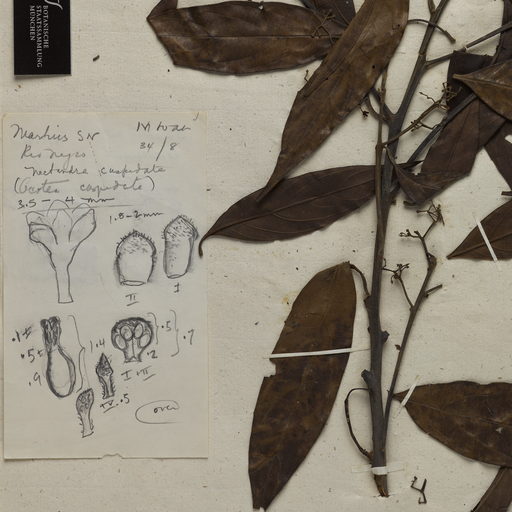 BOTANISCHE
STAATSSAMMLUNG
MÜNCHEN
Martius SN
34/8
Rio Negro
Nectandra cuspidata
cuspidata)
3.5 – 4 mm
1.5-2mm
II
I
.1±
.5±
.9
1.4
.5
.7
.2
I + II
IV .5
over